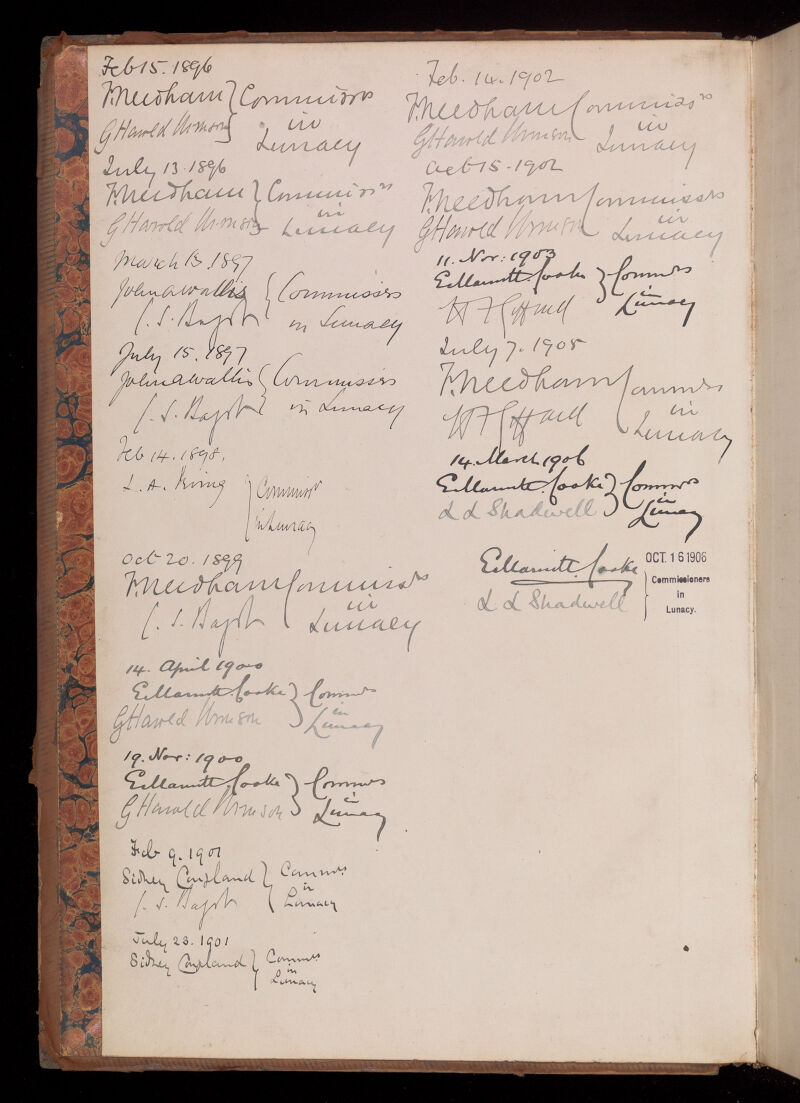 Feb 15. 1896
F. Needham } Commissrs
G Harold Urmson in Lunacy
July 13. 1896
F. Needham } Commissrs
G Harold Urmson in Lunacy
March 13. 1897
John A Wallis { Commissrs
C. S. Bagot in Lunacy
July 15. 1897
John A Wallis { Commissrs
C. S. Bagot in Lunacy
Feb 14. 1898.
L. A.
Commissr
in Lunacy
Oct 20. 1899
F. Needham Commissrs
C. S. Bagot ( in Lunacy
14. April 1900
E. Marriott Cooke } Commrs
G Harold Urmson in Lunacy
19. Nov: 1900
E. Marriott Cooke } Commrs
G Harold Urmson in Lunacy
Feb 9. 1901
Sidney Coupland } Commrs
C. S. Bagot in Lunacy
July 23. 1901
Sidney Coupland } Commrs
in Lunacy
Feb. 14. 1902
F. Needham Commissrs
G Harold Urmson in Lunacy
Oct 15. 1902
F. Needham Commissrs
G Harold Urmson in Lunacy
11. Nov: 1903
E. Marriott Cooke } Commrs
in Lunacy
July 7. 1905
F. Needham Commrs
in Lunacy
14. March 1906
E. Marriott Cooke } Commrs
L L Shadwell in Lunacy
E. Marriott Cooke OCT. 16 1906
L. L Shadwell Commissioners
in
Lunacy.